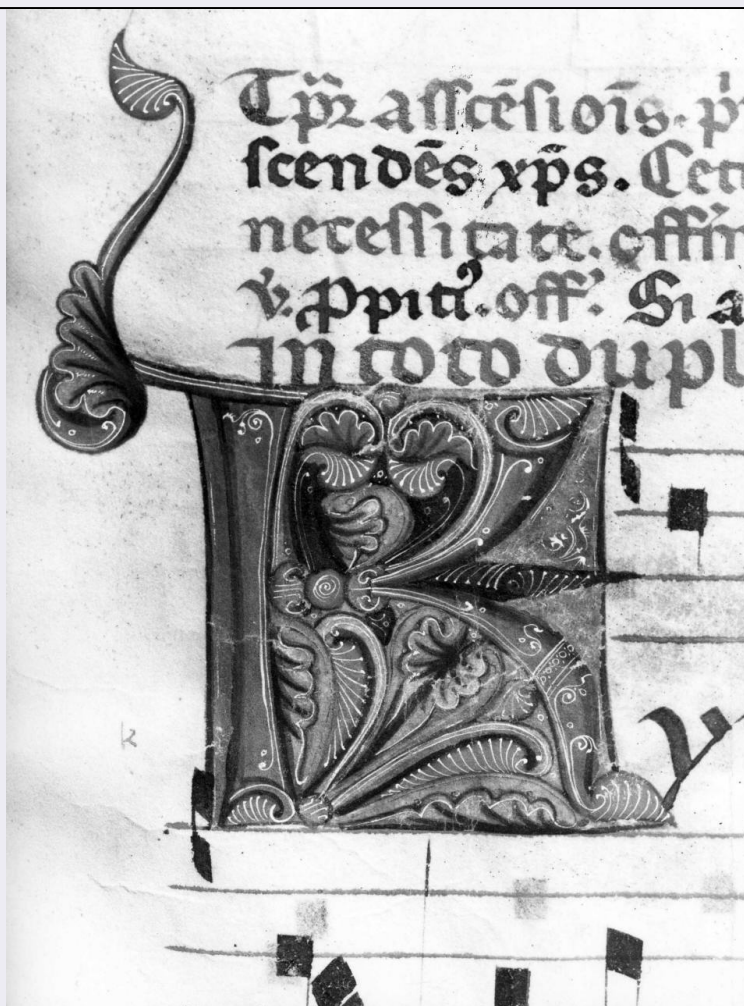 Tp̄r asscēsioīs. p
scendēs xp̄s. Cet
necessitate. offr
v. ppici. off. Si a
in toto dupl
K
y
k